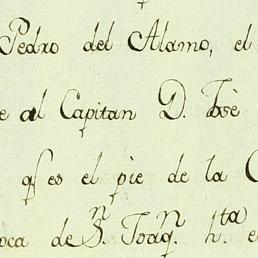 Pedro del Alamo, el
e al Capitan D. Josè
qͤ es el pie de la C
oca de S.ⁿ Joaq.ⁿ h.ᵗᵃ e